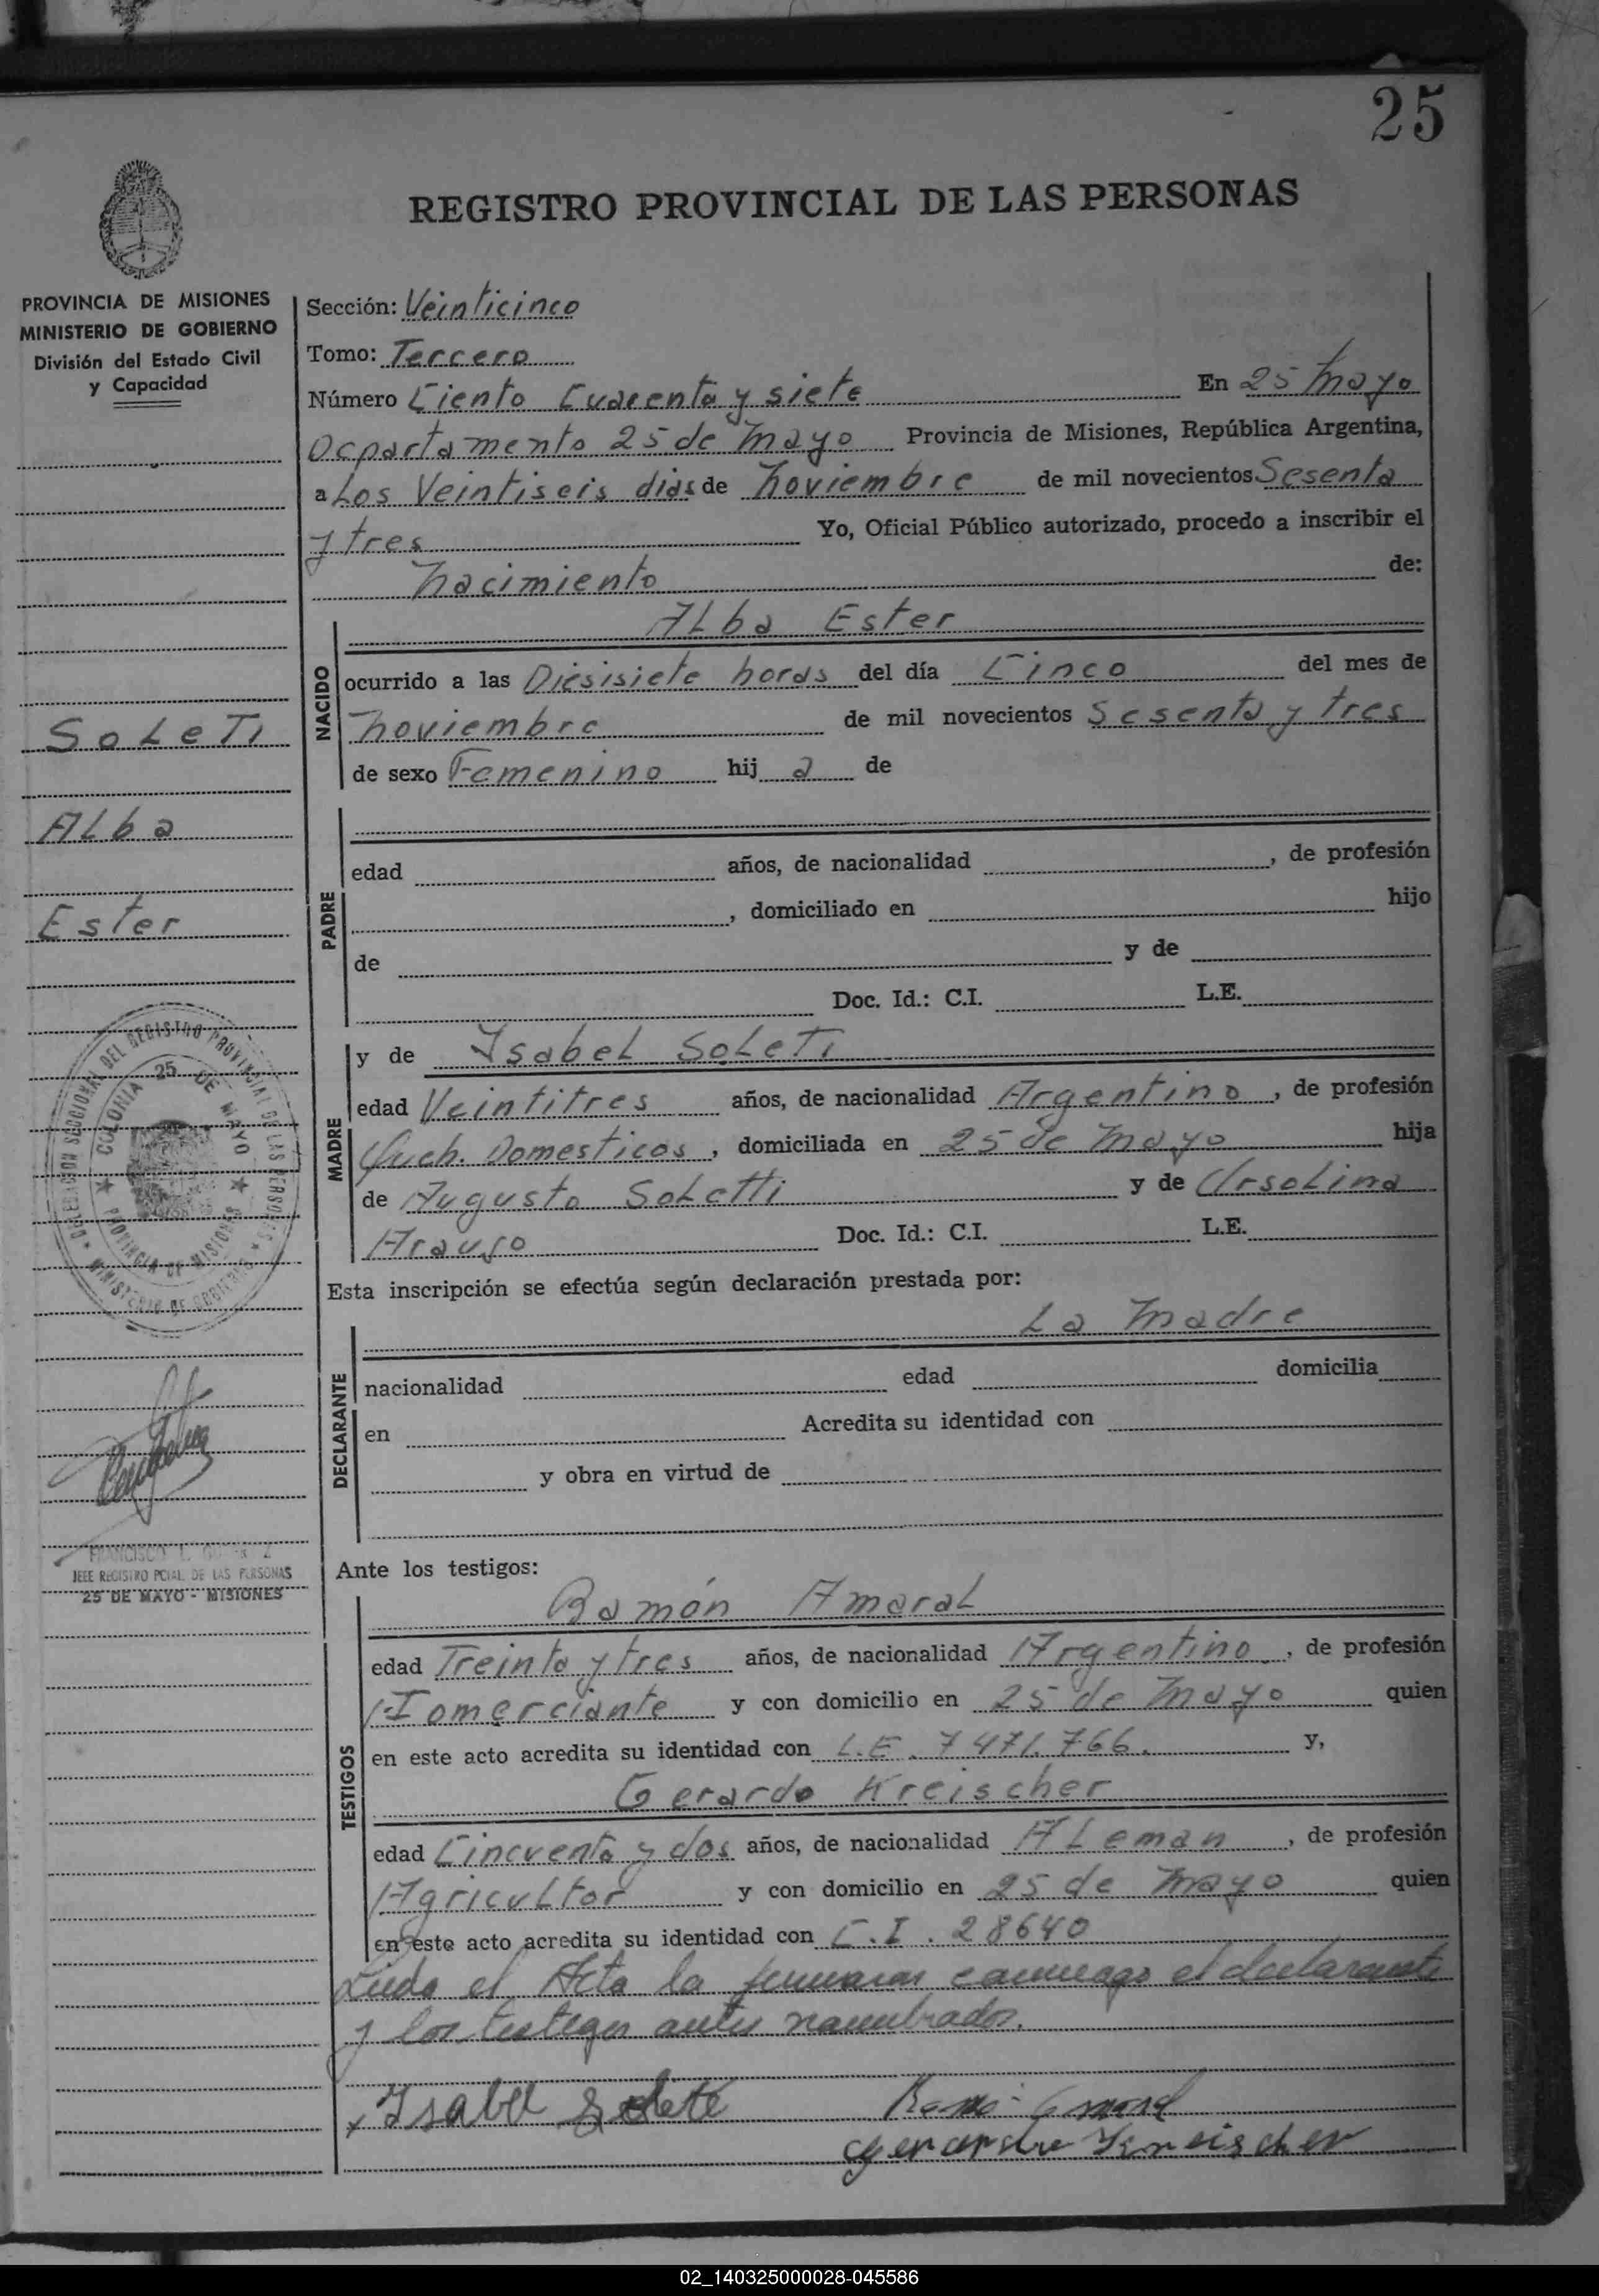 25
REGISTRO PROVINCIAL DE LAS PERSONAS
PROVINCIA DE MISIONES
MINISTERIO DE GOBIERNO
División del Estado Civil
y Capacidad
SoLeTi
ALba
Ester
DELEGACION SECCIONAL DEL REGISTRO PROVINCIAL DE LAS PERSONAS
MINISTERIO DE GOBIERNO
COLONIA 25 DE MAYO
PROVINCIA DE MISIONES
FRANCISCO
JEFE REGISTRO PCIAL. DE LAS PERSONAS
25 DE MAYO - MISIONES
Sección: Veinticinco
Tomo: Tercero
Número Ciento Cuarenta y siete En 25 Mayo
Departamento 25 de Mayo Provincia de Misiones, República Argentina,
a Los Veintiseis dias de Noviembre de mil novecientos Sesenta
y tres Yo, Oficial Público autorizado, procedo a inscribir el
Nacimiento de:
NACIDO
ALba Ester
ocurrido a las Diesisiete horas del día Cinco del mes de
Noviembre de mil novecientos Sesenta y tres
de sexo Femenino hij a de
PADRE
edad años, de nacionalidad , de profesión
, domiciliado en hijo
de y de
Doc. Id.: C.I. L.E.
MADRE
y de IsabeL SoLeTi
edad Veintitres años, de nacionalidad Argentina, de profesión
Domesticos, domiciliada en 25 de Mayo hija
de Augusto SoLetti y de UrsoLina
Doc. Id.: C.I. L.E.
Esta inscripción se efectúa según declaración prestada por:
DECLARANTE
La Madre
nacionalidad edad domicilia
en Acredita su identidad con
y obra en virtud de
Ante los testigos:
TESTIGOS
Ramón AmaraL
edad Treinta y tres años, de nacionalidad Argentino, de profesión
Comerciante y con domicilio en 25 de Mayo quien
en este acto acredita su identidad con L.E. 7471.766. y,
Gerardo Kreischer
edad Cincuenta y dos años, de nacionalidad ALeman, de profesión
AgricuLtor y con domicilio en 25 de Mayo quien
en este acto acredita su identidad con C.I. 28640
Leida el Acta la firmaron conmigo el declarante
y los testigos antes nombrados.
x Isabel Soleti Ramón Amaral
Gerardo Kreischer
02_140325000028-045586